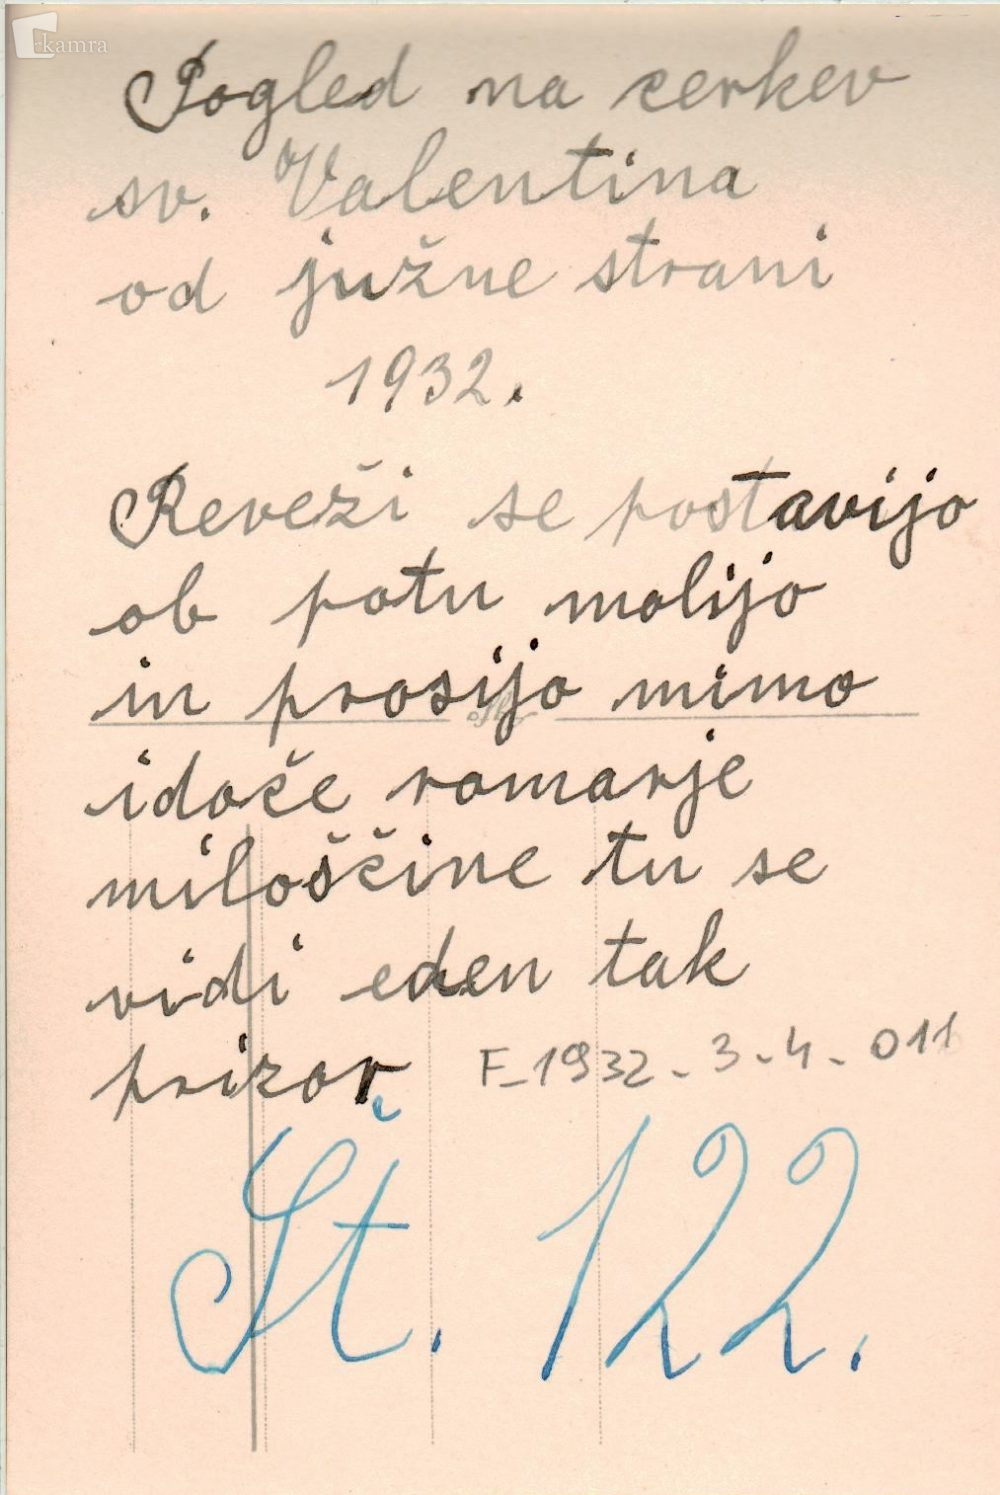 kamra
Pogled na cerkev
sv. Valentina
od južne strani
1932.
Reveži se postavijo
ob potu molijo
in prosijo mimo
idoče romarje
miloščine tu se
vidi eden tak
prizor. F-1932-3-4-011
Št. 122.